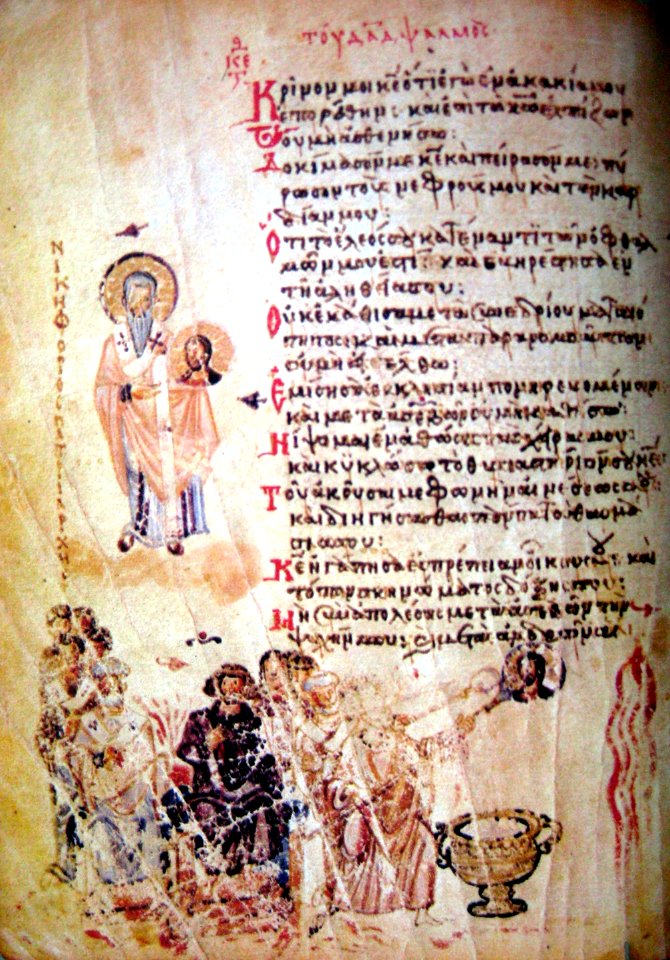 τοῦ δᾱδ ψαλμος
κε
Κρίνον μοι κ̅ε̅ ὅτι ἐγὼ ἐν ἀκακία μου
ἐπορεύθην· καὶ ἐπὶ τῶ κ̅ω̅ ἐλπίζων
οὐ μὴ ἀσθενήσω:
Δοκίμασόν με κ̅ε̅ καὶ πείρασόν με: πύ
ρωσον τοὺς νεφρούς μου καὶ τὴν καρ
δίαν μου:
Ὅτι τὸ ἔλεός σου κατέναντι τῶν ὀφθαλ
μῶν μου ἐστί: καὶ εὐηρέστησα ἐν
τῆ ἀληθεία σου:
Οὐκ ἐκάθισα μετὰ συνεδρίου ματαιό
τητος: καὶ μετὰ παρανομούντων
οὐ μὴ εἰσέλθω:
Ἐμίσησα ἐκκλησίαν πονηρευομένων:
καὶ μετὰ ἀσεβῶν οὐ μὴ καθίσω:
Νίψομαι ἐν ἀθώοις τὰς χεῖράς μου:
καὶ κυκλώσω τὸ θυσιαστήριόν σου κ̅ε̅
Τοῦ ἀκοῦσαί με φωνῆς αἰνέσεώς σου:
καὶ διηγήσασθαι πάντα τὰ θαυμά
σιά σου:
Κ̅ε̅ ἠγάπησα εὐπρέπειαν οἴκου σου: καὶ
τόπον σκηνώματος δόξης σου:
Μὴ συναπολέσης μετὰ ἀσεβῶν τὴν
ψυχήν μου: καὶ μετὰ ἀνδρῶν
ΝΙΚΗΦΟΡΟΣ ΠΑΤΡΙΑΡΧΗΣ